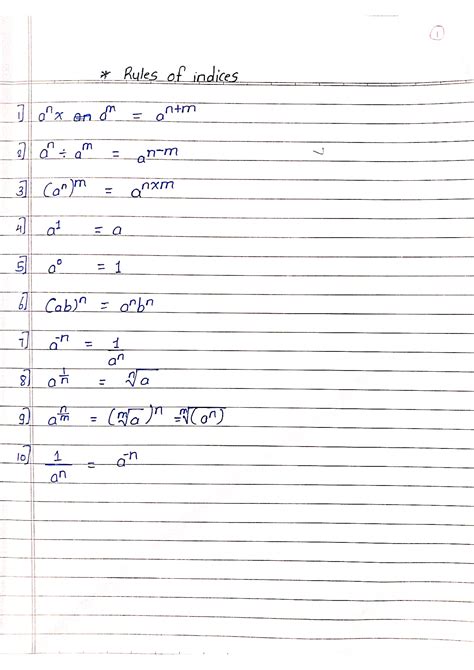 1
* Rules of indices
1] aⁿ x aᵐ = aⁿ⁺ᵐ
2] aⁿ ÷ aᵐ = aⁿ⁻ᵐ
3] (aⁿ)ᵐ = aⁿˣᵐ
4] a¹ = a
5] a⁰ = 1
6] (ab)ⁿ = aⁿbⁿ
7] a⁻ⁿ = 1/aⁿ
8] a^(1/n) = ⁿ√a
9] a^(n/m) = (ᵐ√a)ⁿ = ᵐ√(aⁿ)
10] 1/aⁿ = a⁻ⁿ